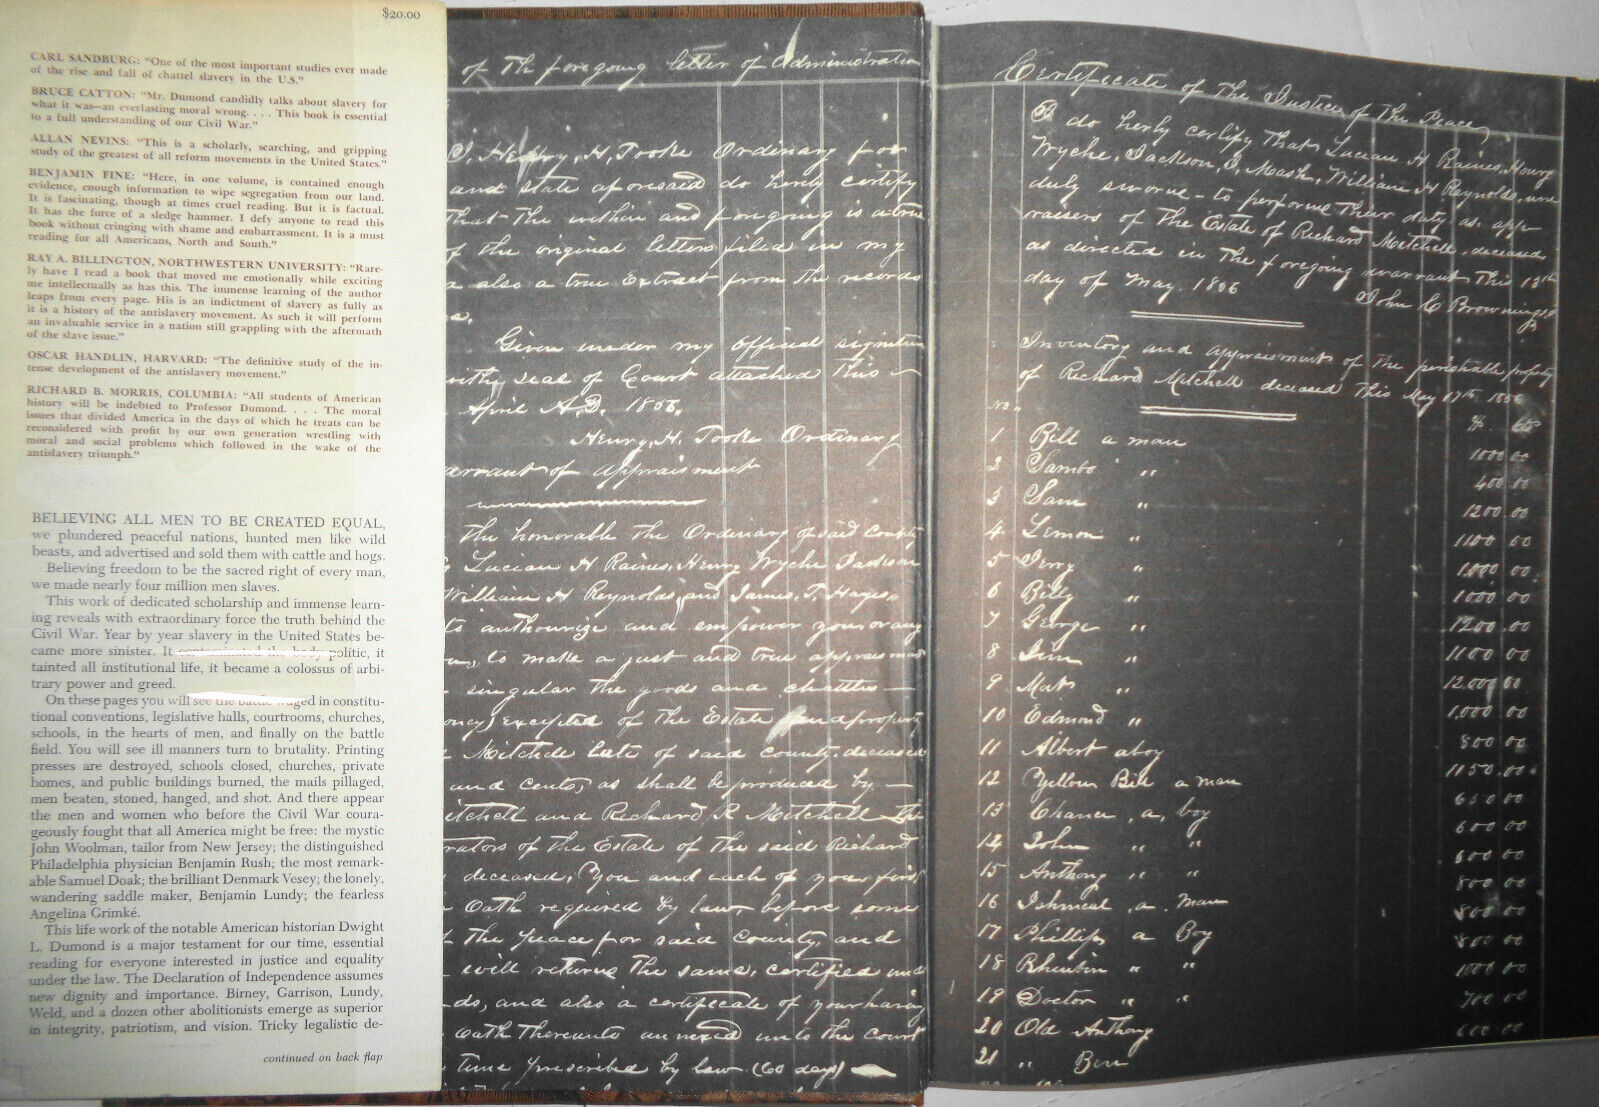 $20.00
CARL SANDBURG: "One of the most important studies ever made
of the rise and fall of chattel slavery in the U.S."
BRUCE CATTON: "Mr. Dumond candidly talks about slavery for
what it was—an everlasting moral wrong. . . . This book is essential
to a full understanding of our Civil War."
ALLAN NEVINS: "This is a scholarly, searching, and gripping
study of the greatest of all reform movements in the United States."
BENJAMIN FINE: "Here, in one volume, is contained enough
evidence, enough information to wipe segregation from our land.
It is fascinating, though at times cruel reading. But it is factual.
It has the force of a sledge hammer. I defy anyone to read this
book without cringing with shame and embarrassment. It is a must
reading for all Americans, North and South."
RAY A. BILLINGTON, NORTHWESTERN UNIVERSITY: "Rare-
ly have I read a book that moved me emotionally while exciting
me intellectually as has this. The immense learning of the author
leaps from every page. His is an indictment of slavery as fully as
it is a history of the antislavery movement. As such it will perform
an invaluable service in a nation still grappling with the aftermath
of the slave issue."
OSCAR HANDLIN, HARVARD: "The definitive study of the in-
tense development of the antislavery movement."
RICHARD B. MORRIS, COLUMBIA: "All students of American
history will be indebted to Professor Dumond. . . . The moral
issues that divided America in the days of which he treats can be
reconsidered with profit by our own generation wrestling with
moral and social problems which followed in the wake of the
antislavery triumph."
BELIEVING ALL MEN TO BE CREATED EQUAL,
we plundered peaceful nations, hunted men like wild
beasts, and advertised and sold them with cattle and hogs.
Believing freedom to be the sacred right of every man,
we made nearly four million men slaves.
This work of dedicated scholarship and immense learn-
ing reveals with extraordinary force the truth behind the
Civil War. Year by year slavery in the United States be-
came more sinister. It contaminated the body politic, it
tainted all institutional life, it became a colossus of arbi-
trary power and greed.
On these pages you will see the battle waged in constitu-
tional conventions, legislative halls, courtrooms, churches,
schools, in the hearts of men, and finally on the battle
field. You will see ill manners turn to brutality. Printing
presses are destroyed, schools closed, churches, private
homes, and public buildings burned, the mails pillaged,
men beaten, stoned, hanged, and shot. And there appear
the men and women who before the Civil War coura-
geously fought that all America might be free: the mystic
John Woolman, tailor from New Jersey; the distinguished
Philadelphia physician Benjamin Rush; the most remark-
able Samuel Doak; the brilliant Denmark Vesey; the lonely,
wandering saddle maker, Benjamin Lundy; the fearless
Angelina Grimké.
This life work of the notable American historian Dwight
L. Dumond is a major testament for our time, essential
reading for everyone interested in justice and equality
under the law. The Declaration of Independence assumes
new dignity and importance. Birney, Garrison, Lundy,
Weld, and a dozen other abolitionists emerge as superior
in integrity, patriotism, and vision. Tricky legalistic de-
continued on back flap
of the foregoing letter of Administration
I, Henry, H, Tooke Ordinary for
and state aforesaid do herby certify
that the within and foregoing is a true
of the original letters filed in my
also a true Extract from the records
Given under my official signature
with seal of Court attached this
April A.D. 1856.
Henry, H. Tooke Ordinary
arrant of appraisment
the honorable the Ordinary of said County
Lucian H Raines, Henry Wyche Jackson
William H Reynolds, and James, T. Hayes,
to authourize and empower you, or any
to make a just and true appraisment
singular the goods and chattles
excepted of the Estate and property
Mitchell late of said county deceased
and cents, as shall be produced by
itchell and Richard R Mitchell
rators of the Estate of the said Richard
deceased, You and each of you first
Oath required by law, before some
the peace for said County, and
will returne the same, certified und
ds, and also a certificate of your having
Oath thereunto annexed unto the court
time prescribed by law (60 days)
Certificate of The Justice of The Peace,
I do herby certify that Lucian H Raines, Henry
Wyche, Jackson, J, Mash, William H Reynolds, were
duly sworne to performe their duty as app-
raisers of The Estate of Richard Mitchell, deceased
as directed in The foregoing warrant This 13th
day of May. 1856 John C Browning JP
Inventory and appraisment of The perishable property
of Richard Mitchell deceased This May 13th 1856
No. $ cts
1 Bill a man 1000 00
2 Sambo " 400.00
3 Sam " 1200.00
4 Lemon " 1100 00
5 Jerry " 1,000 00
6 Billy " 1000 00
7 George " 1200.00
8 Jim " 1100 00
9 Mat " 12.00 00
10 Edmond " 1,000 00
11 Albert a boy 800 00
12 Yellow Bill a man 1150.00
13 Chance, a, boy 650 00
14 John " " 600 00
15 Anthony " " 600 00
16 Ishmeal, a, man 800 00
17 Phillip a Boy 800 00
18 Rheubin " " 800 00
19 Doctor " " 1000 00
20 Old Anthony 700 00
21 " Ben 600 00